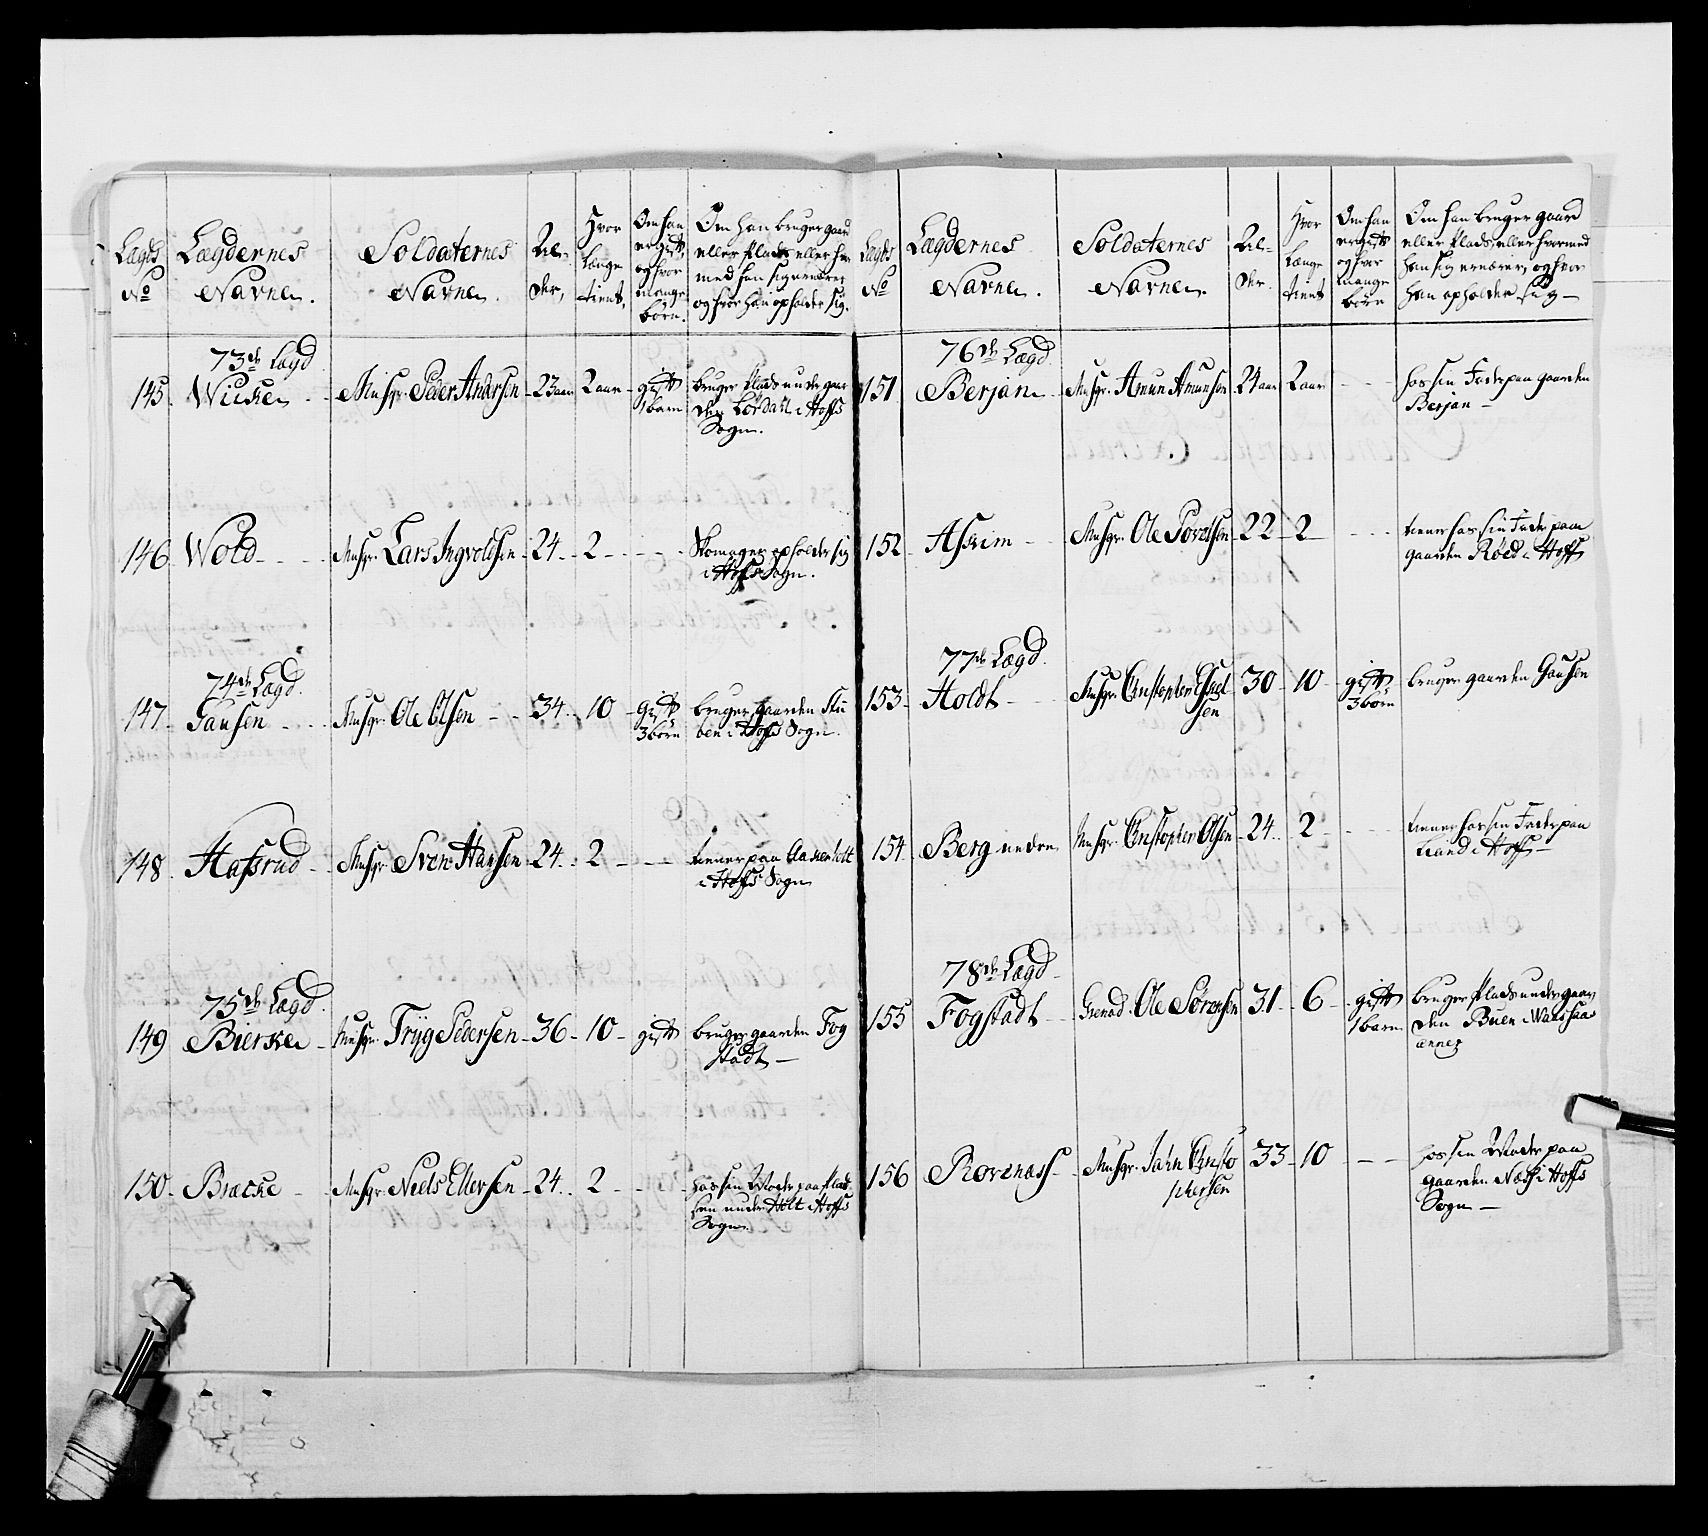 Lægds No
Lægdernes Navne.
Soldaternes Navne.
Al- der,
Hvor længe tient,
Om han er gift, og hvor mange børn.
Om han bruger gaard eller Plads eller hvor med han sig ernærer og hvor han opholder sig.
73de Lægd
145. Wüken - Musqr. Peder Andersen - 23 aar - 2 aar - gift 1 barn
bruger Plads under gaar
den Lørdahl i Hoffs
Sogn.
146. Wold - - - Musqr. Lars Ingvoldsen - 24 - 2 - - -
Skomager opholder sig
i Hoffs Sogn.
74de Lægd.
147. Gausen - - Musqr. Ole Olsen - - 34 - 10 - gift 3 børn
bruger gaarden Stu
ben i Hoffs Sogn.
148. Hafsrud - Musqr. Sven Hansen - 24 - 2 - - -
tiener paa Aaskentvett
i Hoffs Sogn
75de Lægd.
149. Bierke - Musqr. Tryg Pedersen - 36 - 10 - gift
bruger gaarden Fog
stadt -
150. Bracke - Musqr. Niels Ellevsen - 24 - 2 - - -
hos sin Moder paa Plad
sen under Holt i Hoffs
Sogn.
Lægds No
Lægdernes Navne.
Soldaternes Navne.
Al- der.
Hvor længe tient
Om han er gift og hvor mange børn
Om han bruger gaard eller Plads eller hvormed han sig ernærer, og hvor han opholder sig -
76de Lægd
151. Berjan - Musqr. Amun Amunsen 24 aar - 2 aar - - -
hos sin Fader paa gaarden
Berjan -
152. Askim - Musqr. Ole Sørensen - 22 - 2 - - -
tiener hos sin Fader paa
gaarden Røed i Hoffs
77de Lægd.
153 - Holdt - Musqr. Christopher
sen 30 - 10 - gift 3 børn
bruger gaarden Gausen
154. Berg nedre. Musqr. Christopher Olsen - 24 - 2 - - -
tiener hos sin Fader paa
Land i Hoffs -
78de Lægd -
155 Fogstadt - Grenad. Ole Sørensen 31 - 6 - gift 1 barn
bruger Plads under gaar
den Buen i
annex
156 Rovenass - Musqr. Jahn Christo
phersen 33 - 10 - - -
hos sin Moder paa
gaarden Næss i Hoffs
Sogn -